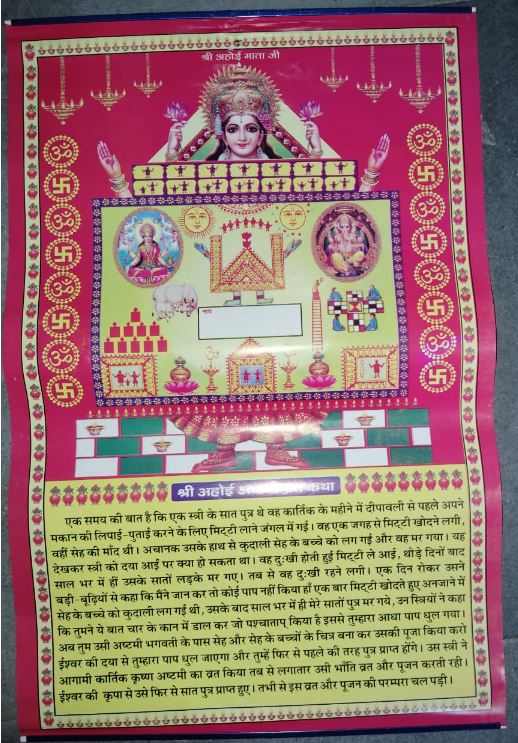 श्री अहोई माता जी
नाम
श्री अहोई कथा
एक समय की बात है कि एक स्त्री के सात पुत्र थे वह कार्तिक के महीने में दीपावली से पहले अपने
मकान की लिपाई-पुताई करने के लिए मिट्टी लाने जंगल में गई। वह एक जगह से मिट्टी खोदने लगी,
वहीं सेह की माँद थी। अचानक उसके हाथ से कुदाली सेह के बच्चे को लग गई और वह मर गया। यह
देखकर स्त्री को दया आई पर क्या हो सकता था। वह दुःखी होती हुई मिट्टी ले आई, थोड़े दिनों बाद
साल भर में हीं उसके सातों लड़के मर गए। तब से वह दुःखी रहने लगी। एक दिन रोकर उसने
बड़ी-बूढ़ियों से कहा कि मैंने जान कर तो कोई पाप नहीं किया हाँ एक बार मिट्टी खोदते हुए अनजाने में
सेह के बच्चे को कुदाली लग गई थी, उसके बाद साल भर में ही मेरे सातों पुत्र मर गये, उन स्त्रियों ने कहा
कि तुमने ये बात चार के कान में डाल कर जो पश्चाताप् किया है इससे तुम्हारा आधा पाप धुल गया।
अब तुम उसी अष्टमी भगवती के पास सेह और सेह के बच्चों के चित्र बना कर उसकी पूजा किया करो
ईश्वर की दया से तुम्हारा पाप धुल जाएगा और तुम्हें फिर से पहले की तरह पुत्र प्राप्त होंगे। उस स्त्री ने
आगामी कार्तिक कृष्ण अष्टमी का व्रत किया तब से लगातार उसी भाँति व्रत और पूजन करती रही।
ईश्वर की कृपा से उसे फिर से सात पुत्र प्राप्त हुए। तभी से इस व्रत और पूजन की परम्परा चल पड़ी।